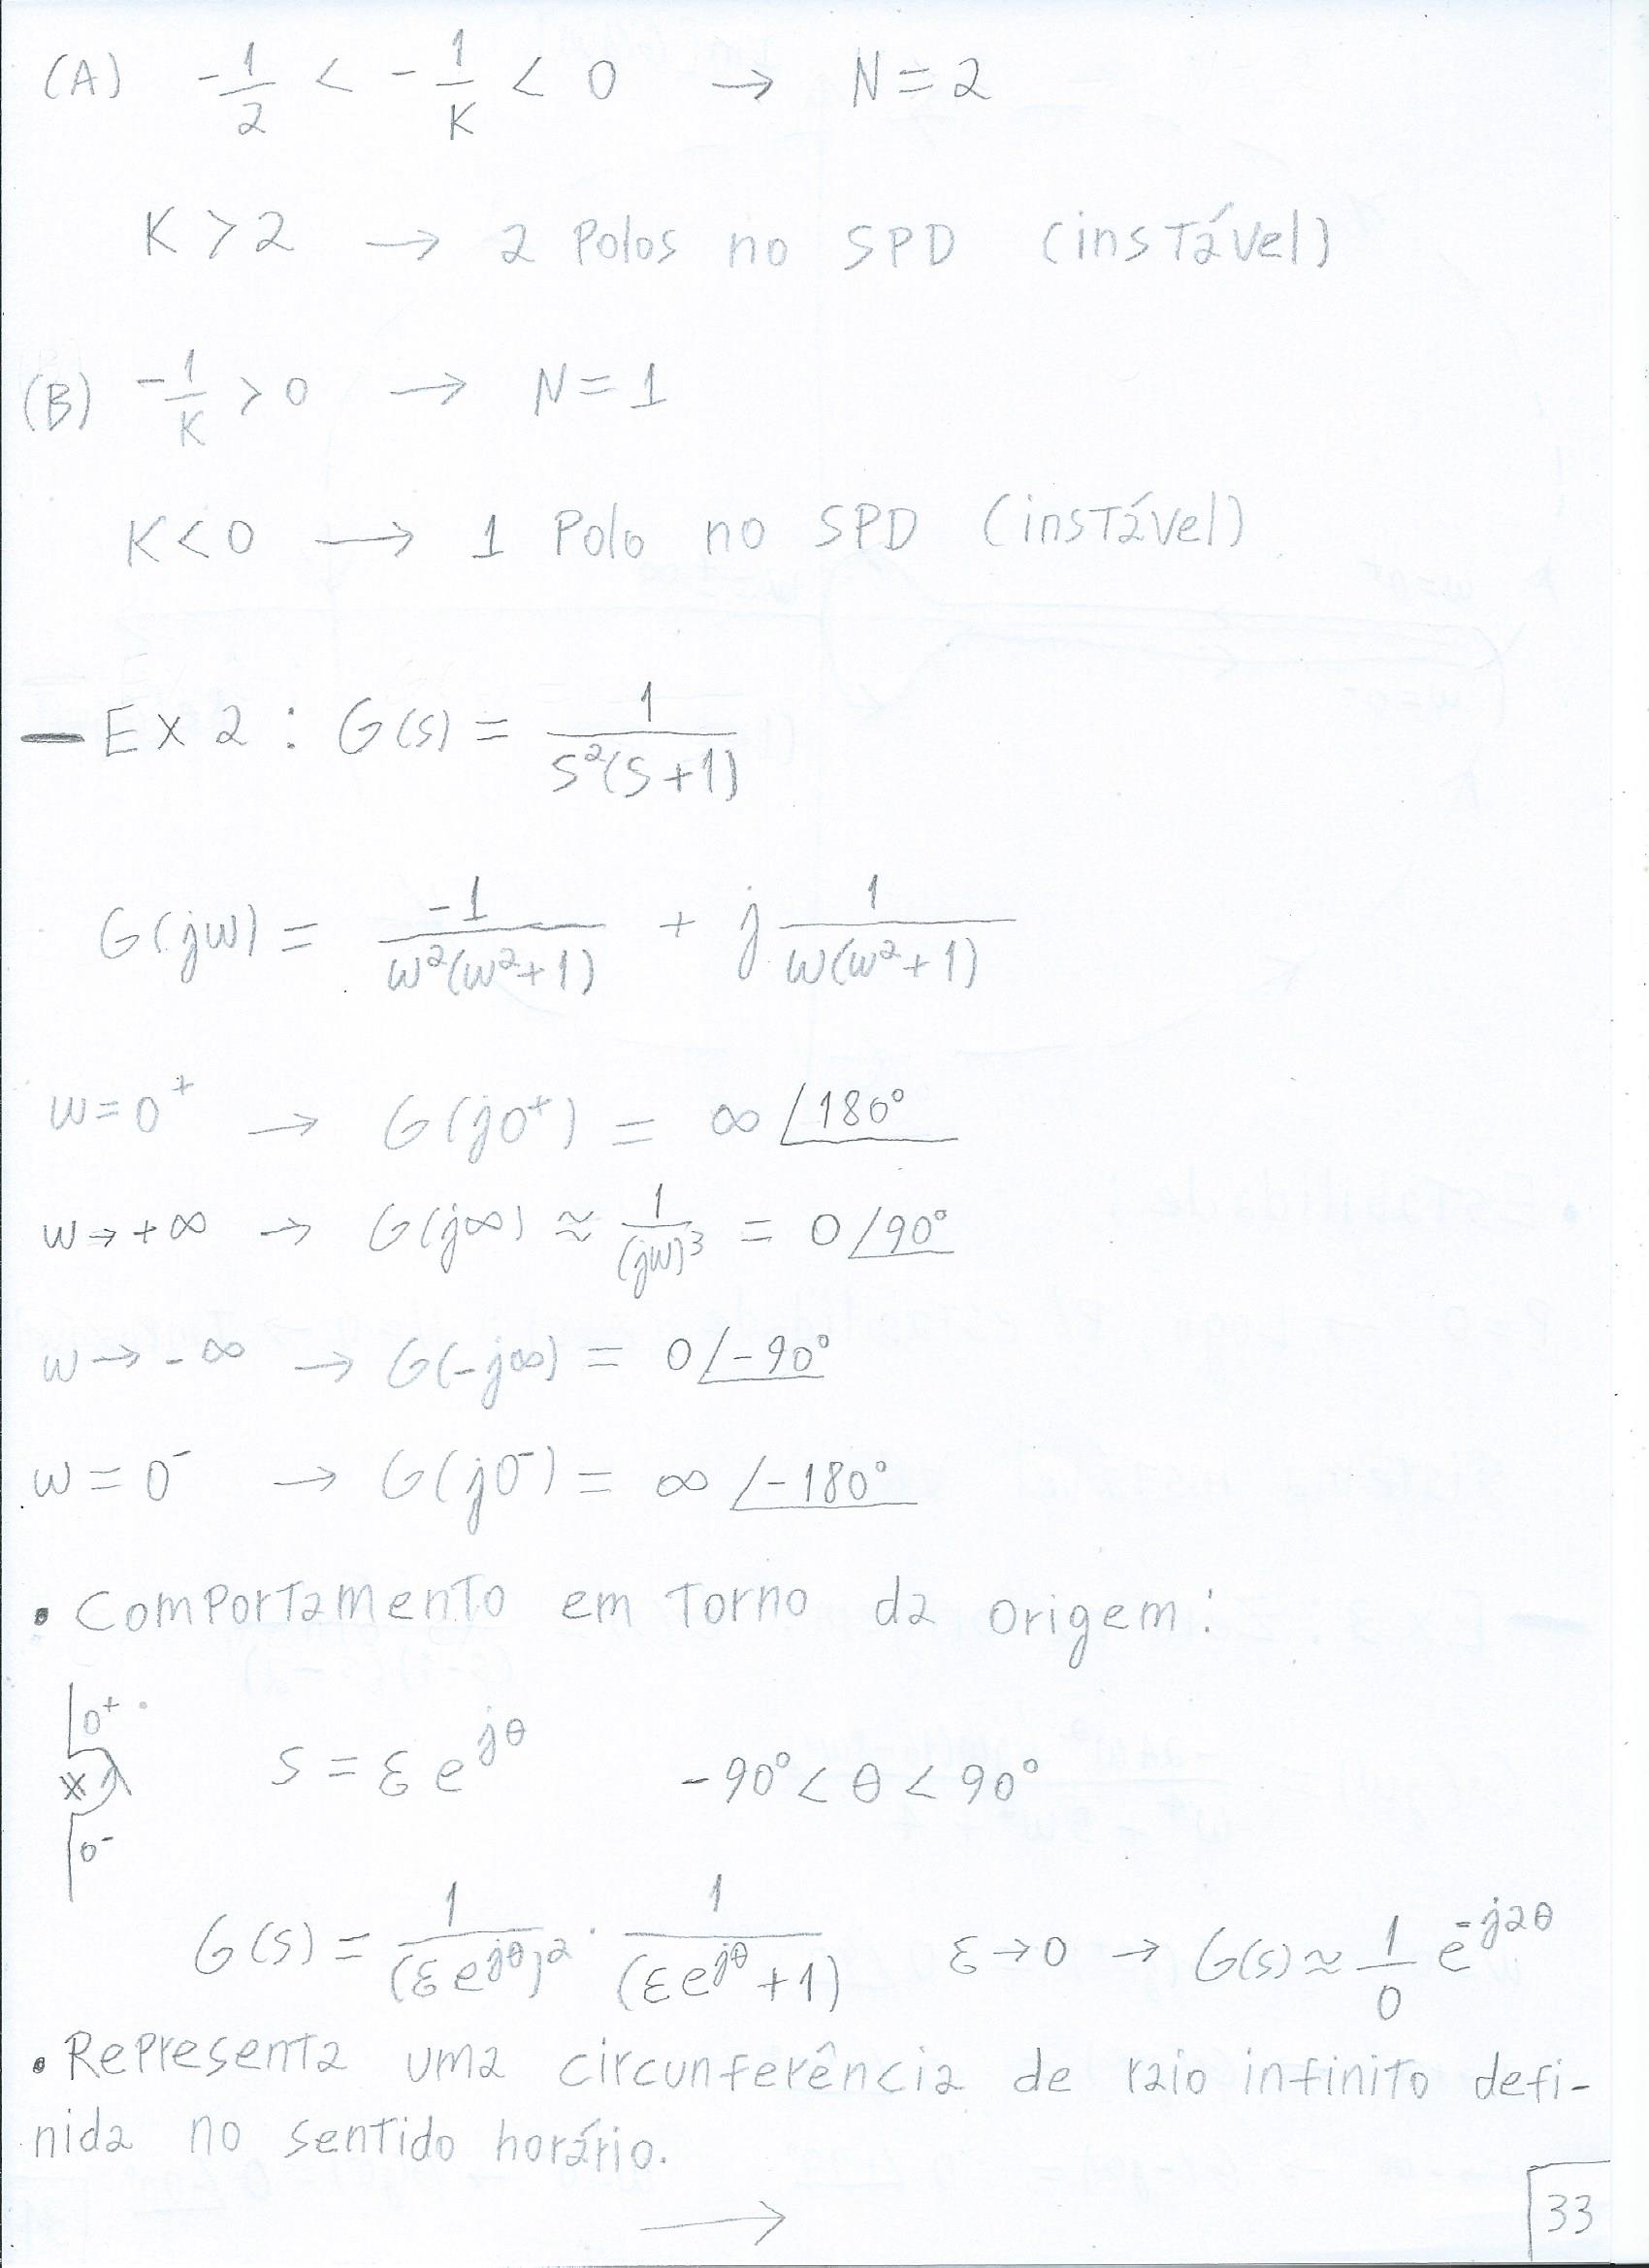 (A) -1/2 < -1/K < 0 → N=2
K>2 → 2 Polos no SPD (instável)
(B) -1/K > 0 → N=1
K<0 → 1 Polo no SPD (instável)
— Ex 2 : G(s) = 1/(s²(s+1))
G(jω) = -1/(ω²(ω²+1)) + j 1/(ω(ω²+1))
ω=0⁺ → G(j0⁺) = ∞ ∠180°
ω→+∞ → G(j∞) ≈ 1/(jω)³ = 0 ∠90°
ω→-∞ → G(-j∞) = 0 ∠-90°
ω=0⁻ → G(j0⁻) = ∞ ∠-180°
• Comportamento em torno da origem:
0⁺
x
0⁻
s = εe^(jθ) -90°<θ<90°
G(s) = 1/(εe^(jθ))² · 1/(εe^(jθ)+1) ε→0 → G(s)≈ 1/0 e^(-j2θ)
• Representa uma circunferência de raio infinito defi-
nida no sentido horário.
→
33